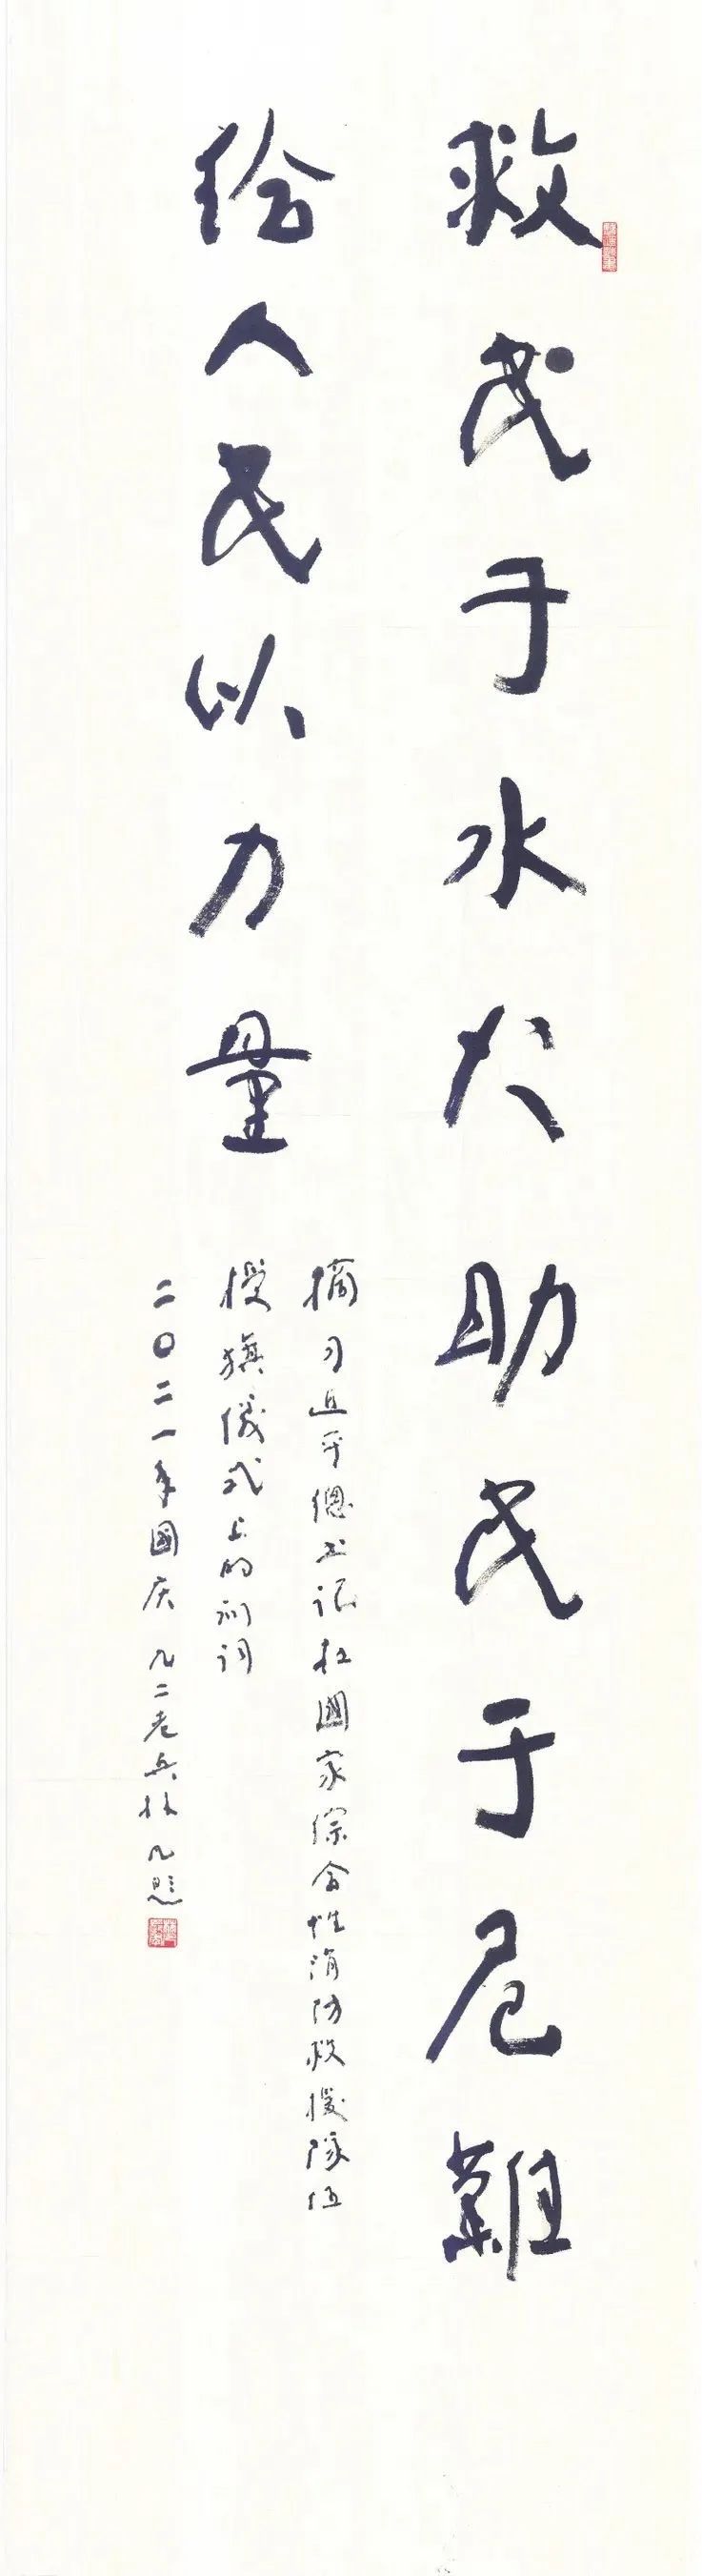 救民于水火助民于危難
给人民以力量
摘习近平總书记在國家综合性消防救援隊伍
授旗儀式上的训词
二〇二一年國庆 九二老兵林凡